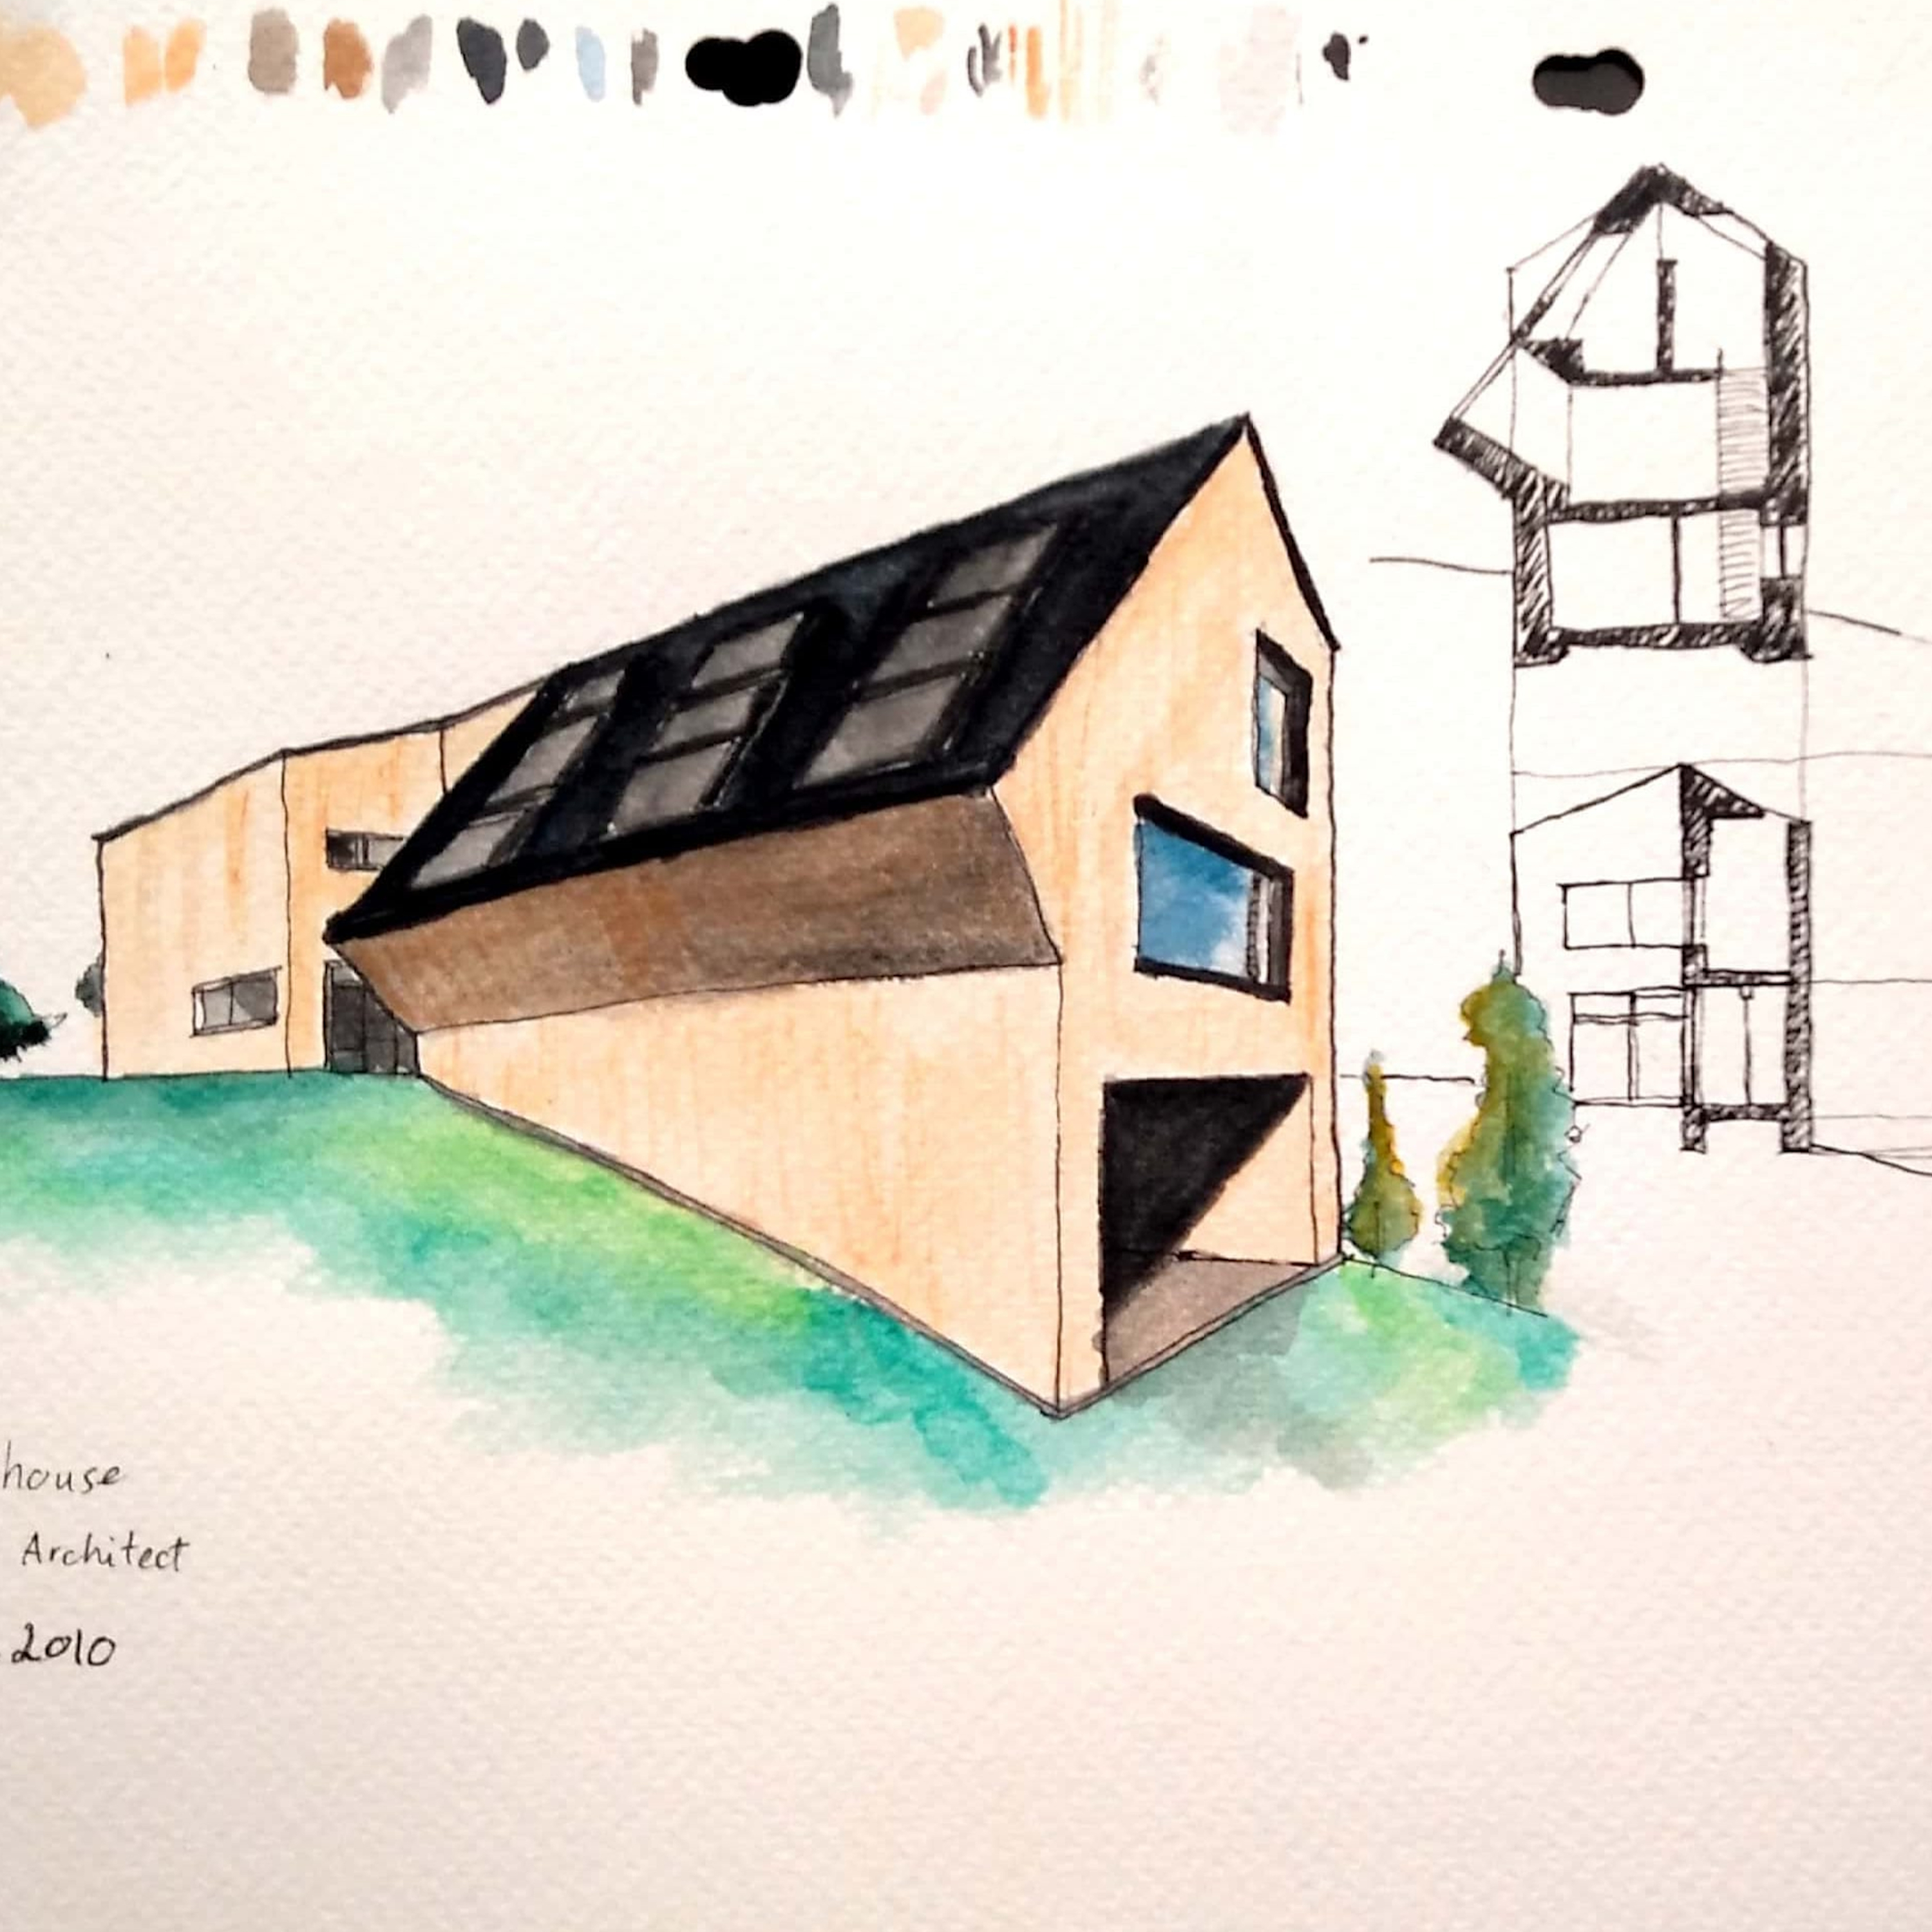 house
Architect
2010